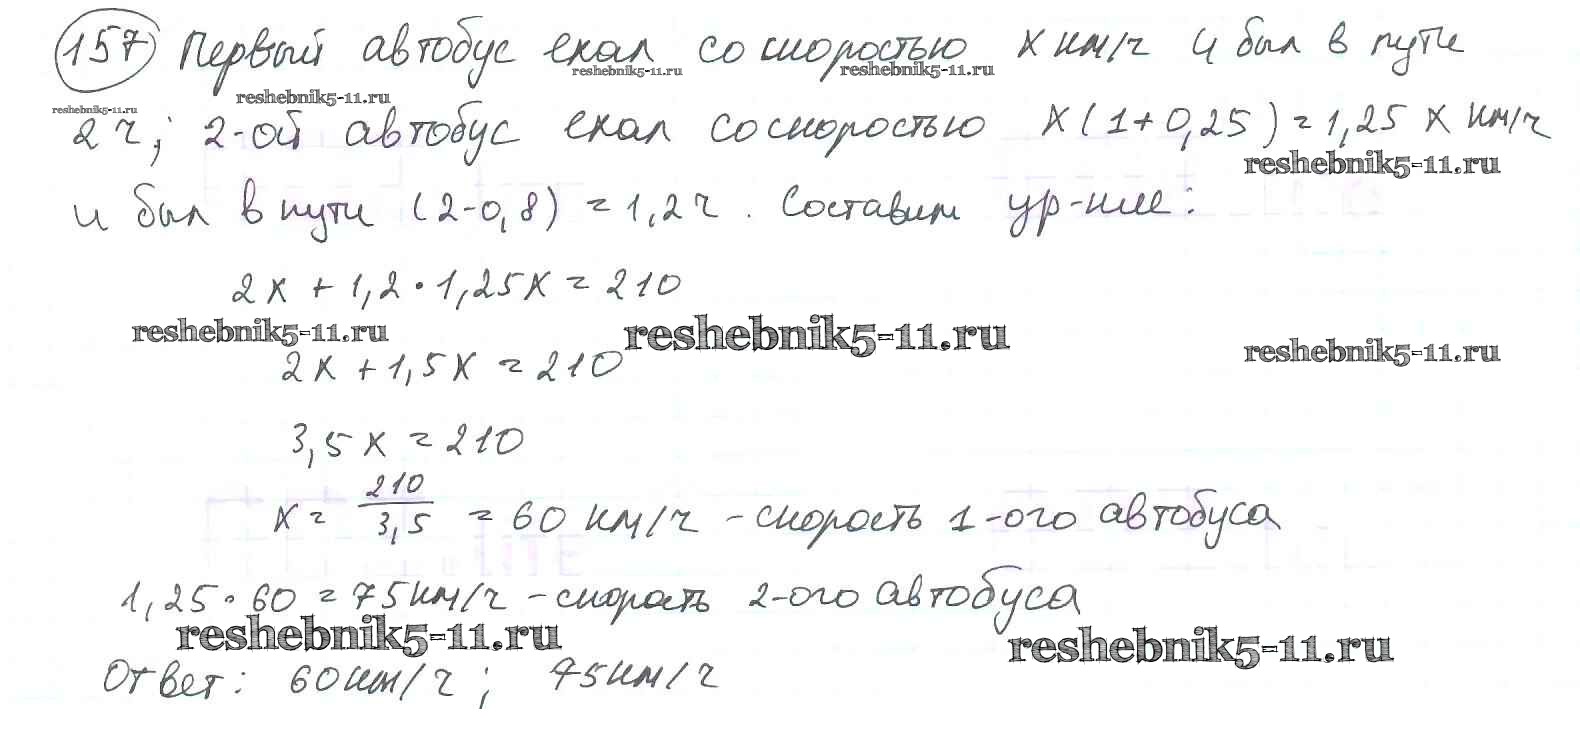 157 Первый автобус ехал со скоростью x км/ч и был в пути
reshebnik5-11.ru reshebnik5-11.ru
reshebnik5-11.ru reshebnik5-11.ru
2 ч; 2-ой автобус ехал со скоростью x(1+0,25)=1,25 x км/ч
reshebnik5-11.ru
и был в пути (2-0,8)=1,2ч. Составим ур-ние:
2x + 1,2·1,25x = 210
reshebnik5-11.ru reshebnik5-11.ru reshebnik5-11.ru
2x + 1,5x = 210
3,5x = 210
x = 210/3,5 = 60 км/ч - скорость 1-ого автобуса
1,25·60 = 75км/ч - скорость 2-ого автобуса
reshebnik5-11.ru reshebnik5-11.ru
Ответ: 60км/ч; 75км/ч